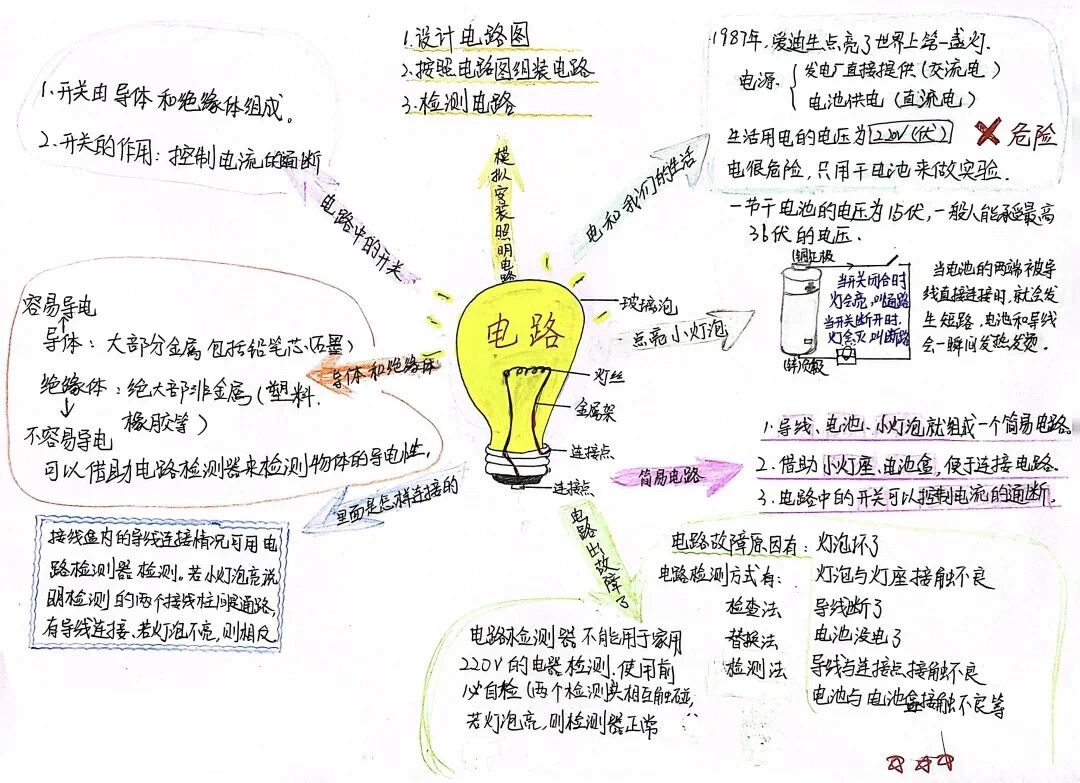 电路
玻璃泡
灯丝
金属架
连接点
连接点
模拟安装照明电路
1.设计电路图
2.按照电路图组装电路
3.检测电路
电和我们的生活
1987年,爱迪生点亮了世界上第一盏灯.
电源
发电厂直接提供(交流电)
电池供电(直流电)
生活用电的电压为220V(伏) ✗ 危险
电很危险,只用干电池来做实验.
点亮小灯泡
一节干电池的电压为15伏,一般人能承受最高
36伏的电压.
铜正极
当开关闭合时
灯会亮,叫通路
当开关断开时,
灯会灭,叫断路
锌负极
当电池的两端被导
线直接连接时,就会发
生短路,电池和导线
会一瞬间发热发烫。
简易电路
1.导线、电池、小灯泡就组成一个简易电路.
2.借助小灯座、电池盒,便于连接电路.
3.电路中的开关可以控制电流的通断.
电路出故障了
电路故障原因有:灯泡坏了
灯泡与灯座接触不良
导线断了
电池没电了
导线与连接点接触不良
电池与电池盒接触不良等
电路检测方式有:
检查法
替换法
检测法
电路检测器不能用于家用
220V的电器检测.使用前
必自检(两个检测头相互触碰,
若灯泡亮,则检测器正常
里面是怎样连接的
接线盒内的导线连接情况可用电
路检测器检测。若小灯泡亮说
明检测的两个接线柱间是通路,
有导线连接、若灯泡不亮,则相反
导体和绝缘体
容易导电
导体:大部分金属 包括铅笔芯(石墨)
绝缘体:绝大部非金属(塑料.
橡胶等)
不容易导电
可以借助电路检测器来检测物体的导电性.
电路中的开关
1.开关由导体和绝缘体组成。
2.开关的作用:控制电流的通断